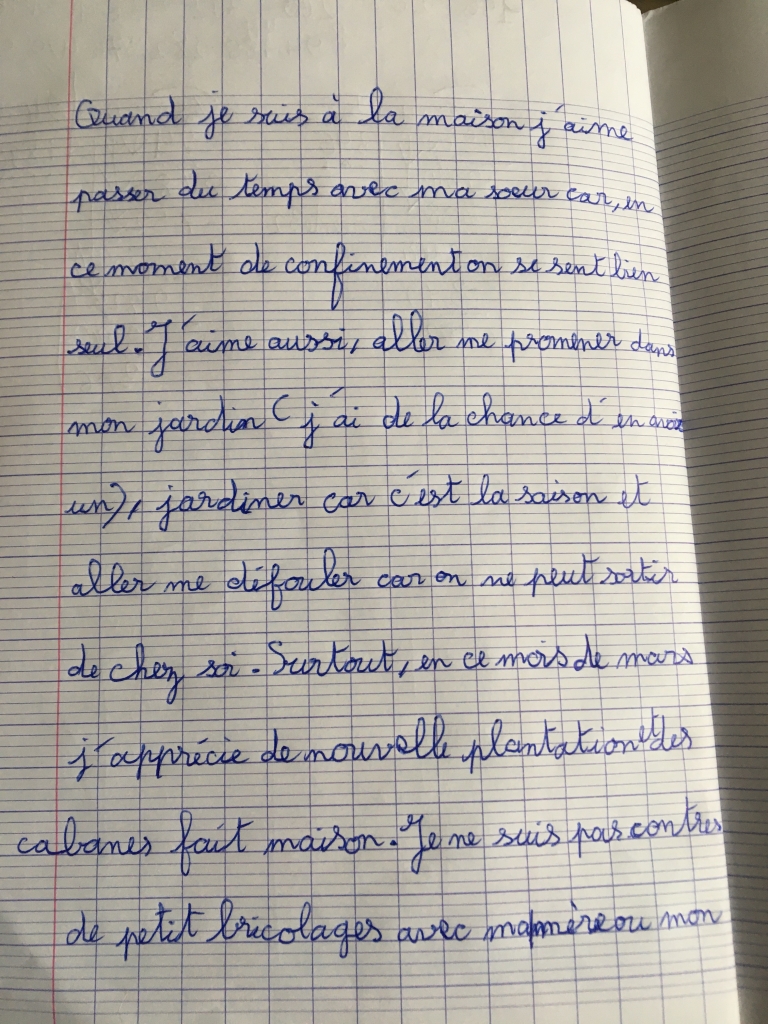 Quand je suis à la maison j'aime
passer du temps avec ma soeur car, en
ce moment de confinement on se sent bien
seul. J'aime aussi, aller me promener dans
mon jardin ( j'ai de la chance d'en avoir
un), jardiner car c'est la saison et
aller me défouler car on ne peut sortir
de chez soi. Surtout, en ce mois de mars
j'apprécie de nouvelle plantation et des
cabanes fait maison. Je ne suis pas contres
de petit bricolages avec ma mère ou mon